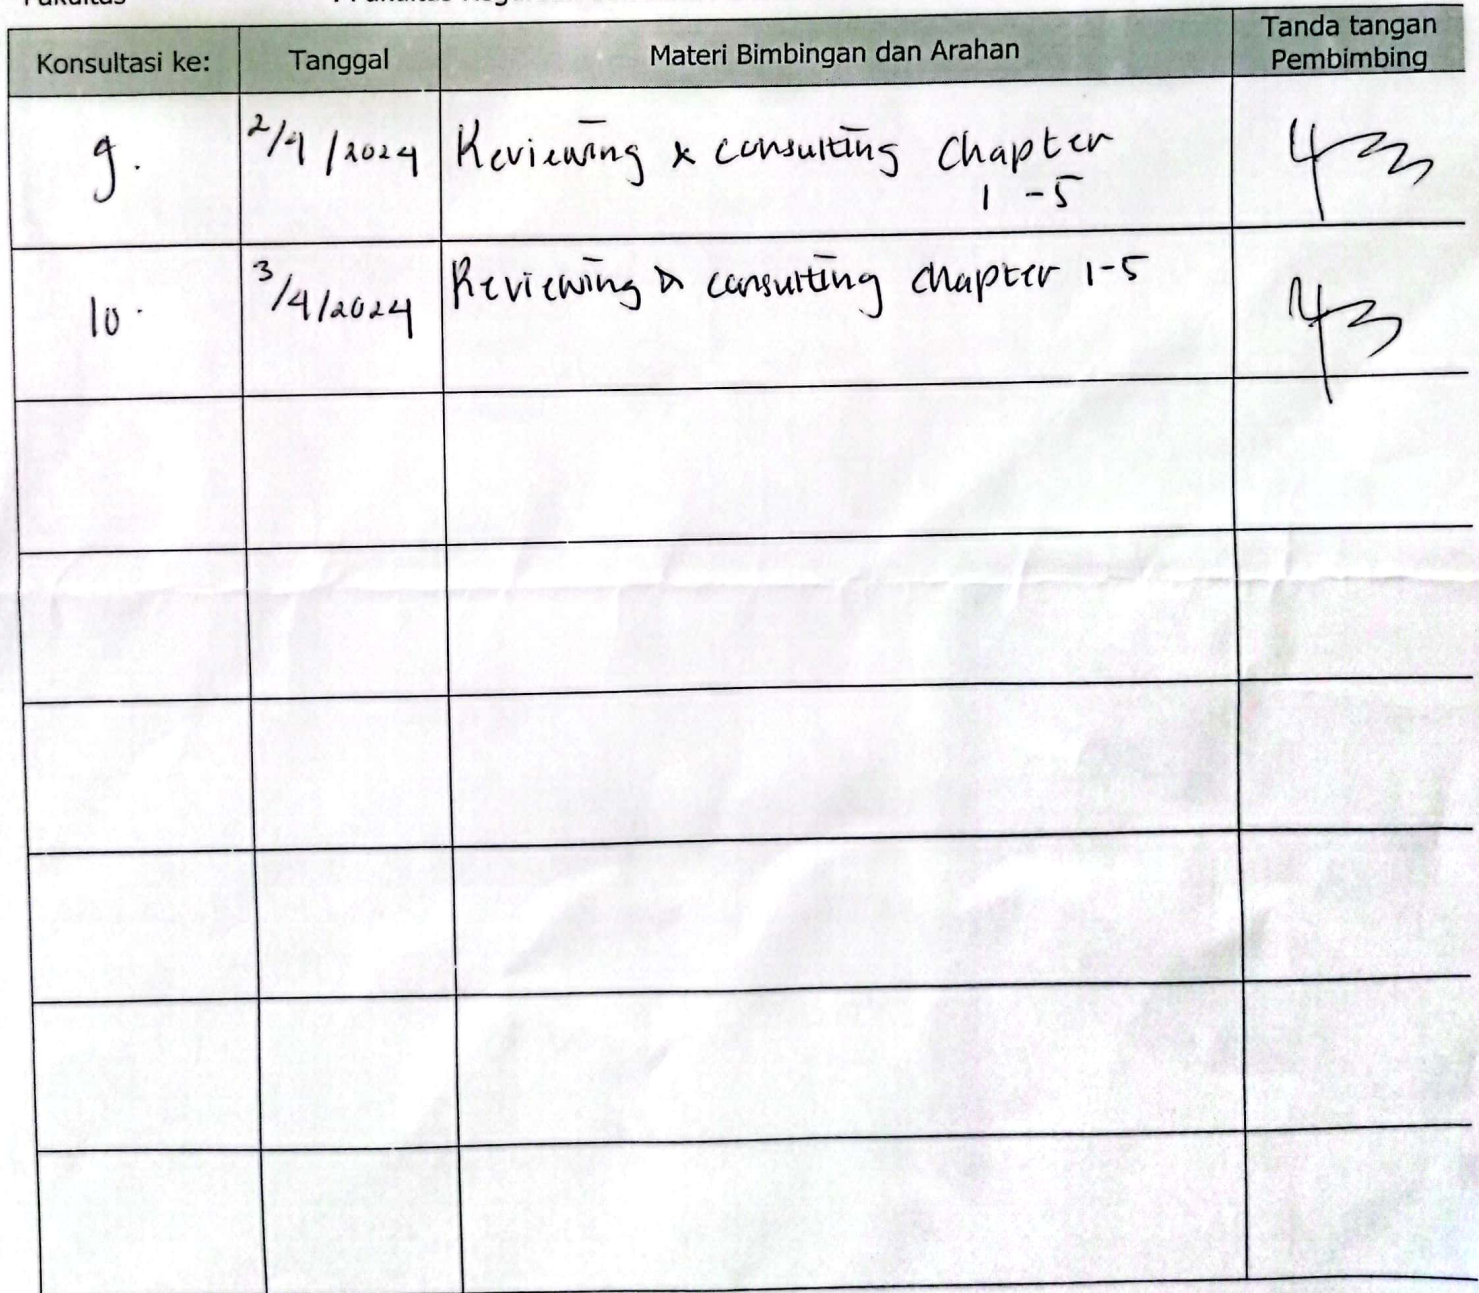 Konsultasi ke: Tanggal Materi Bimbingan dan Arahan Tanda tangan
Pembimbing
9. 2/4/2024 Reviewing & consulting Chapter
1-5
10. 3/4/2024 Reviewing & consulting chapter 1-5